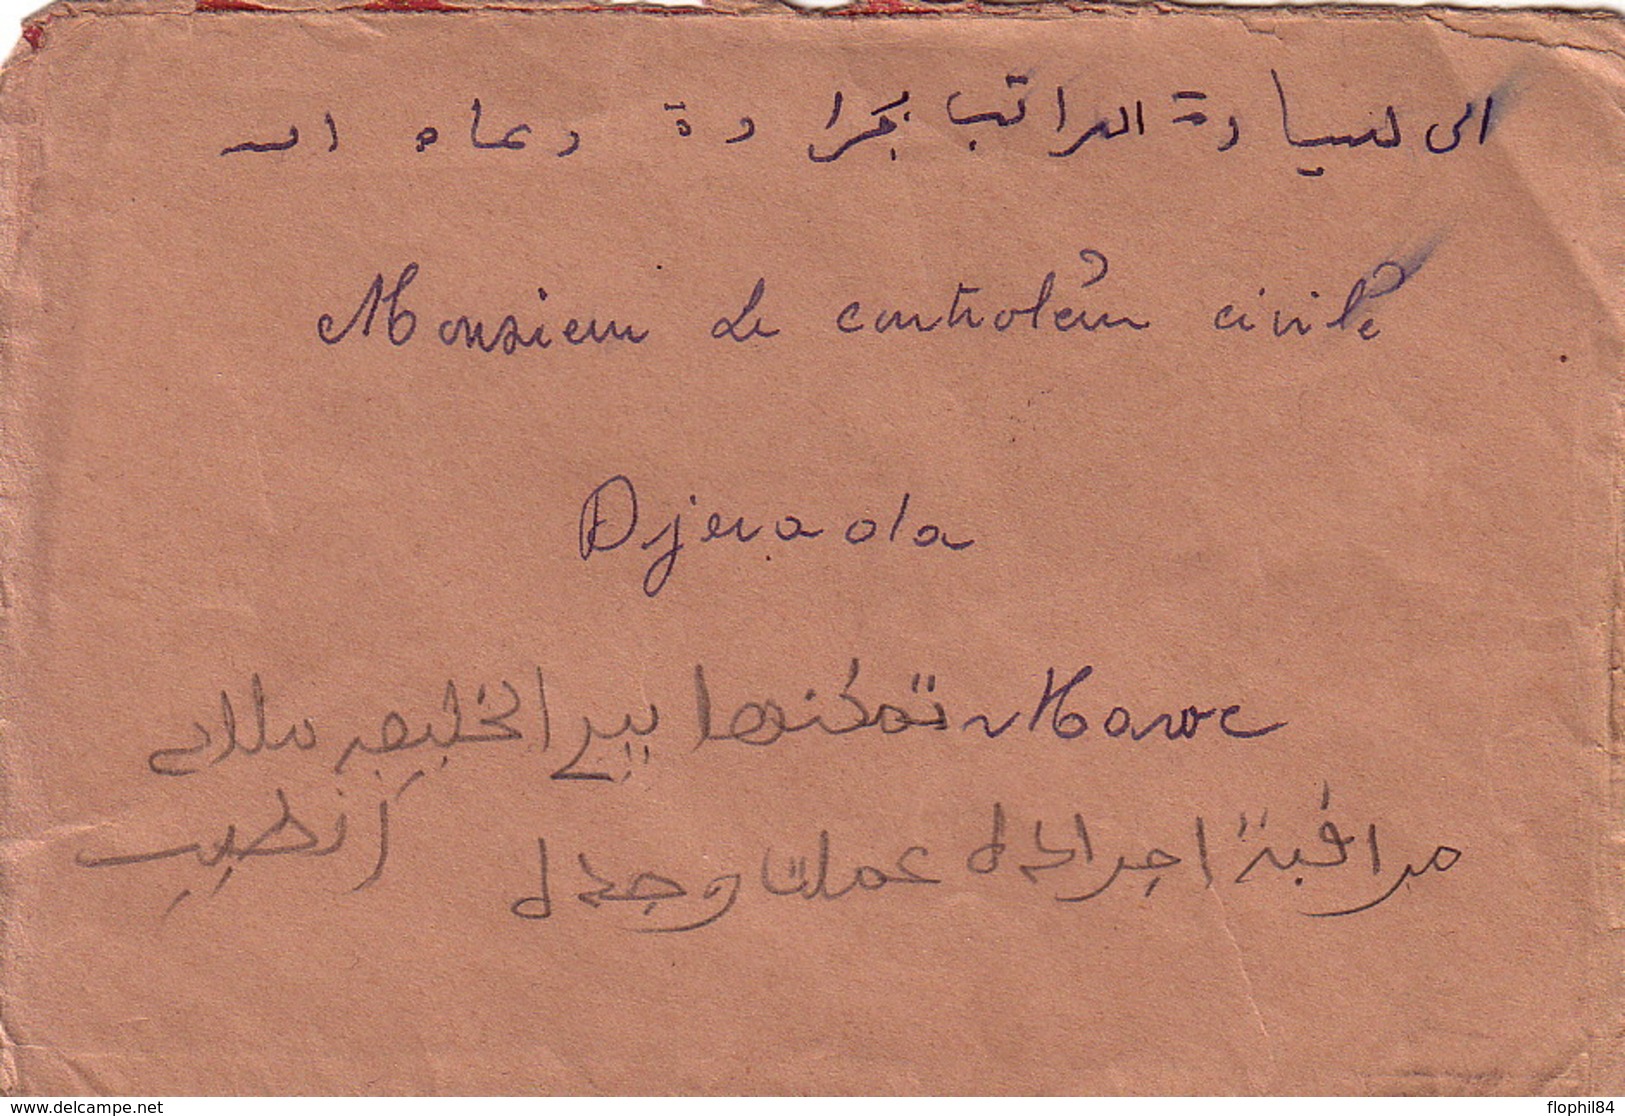 الى لسيادة المراقب بجرادة رعاه الله
Monsieur Le controleur civile
Djerada
Maroc تمكنها بيد الخليفة ملاي
مراقبة اجرادة عملت وجدة
الطيب
delcampe.net
flophil84